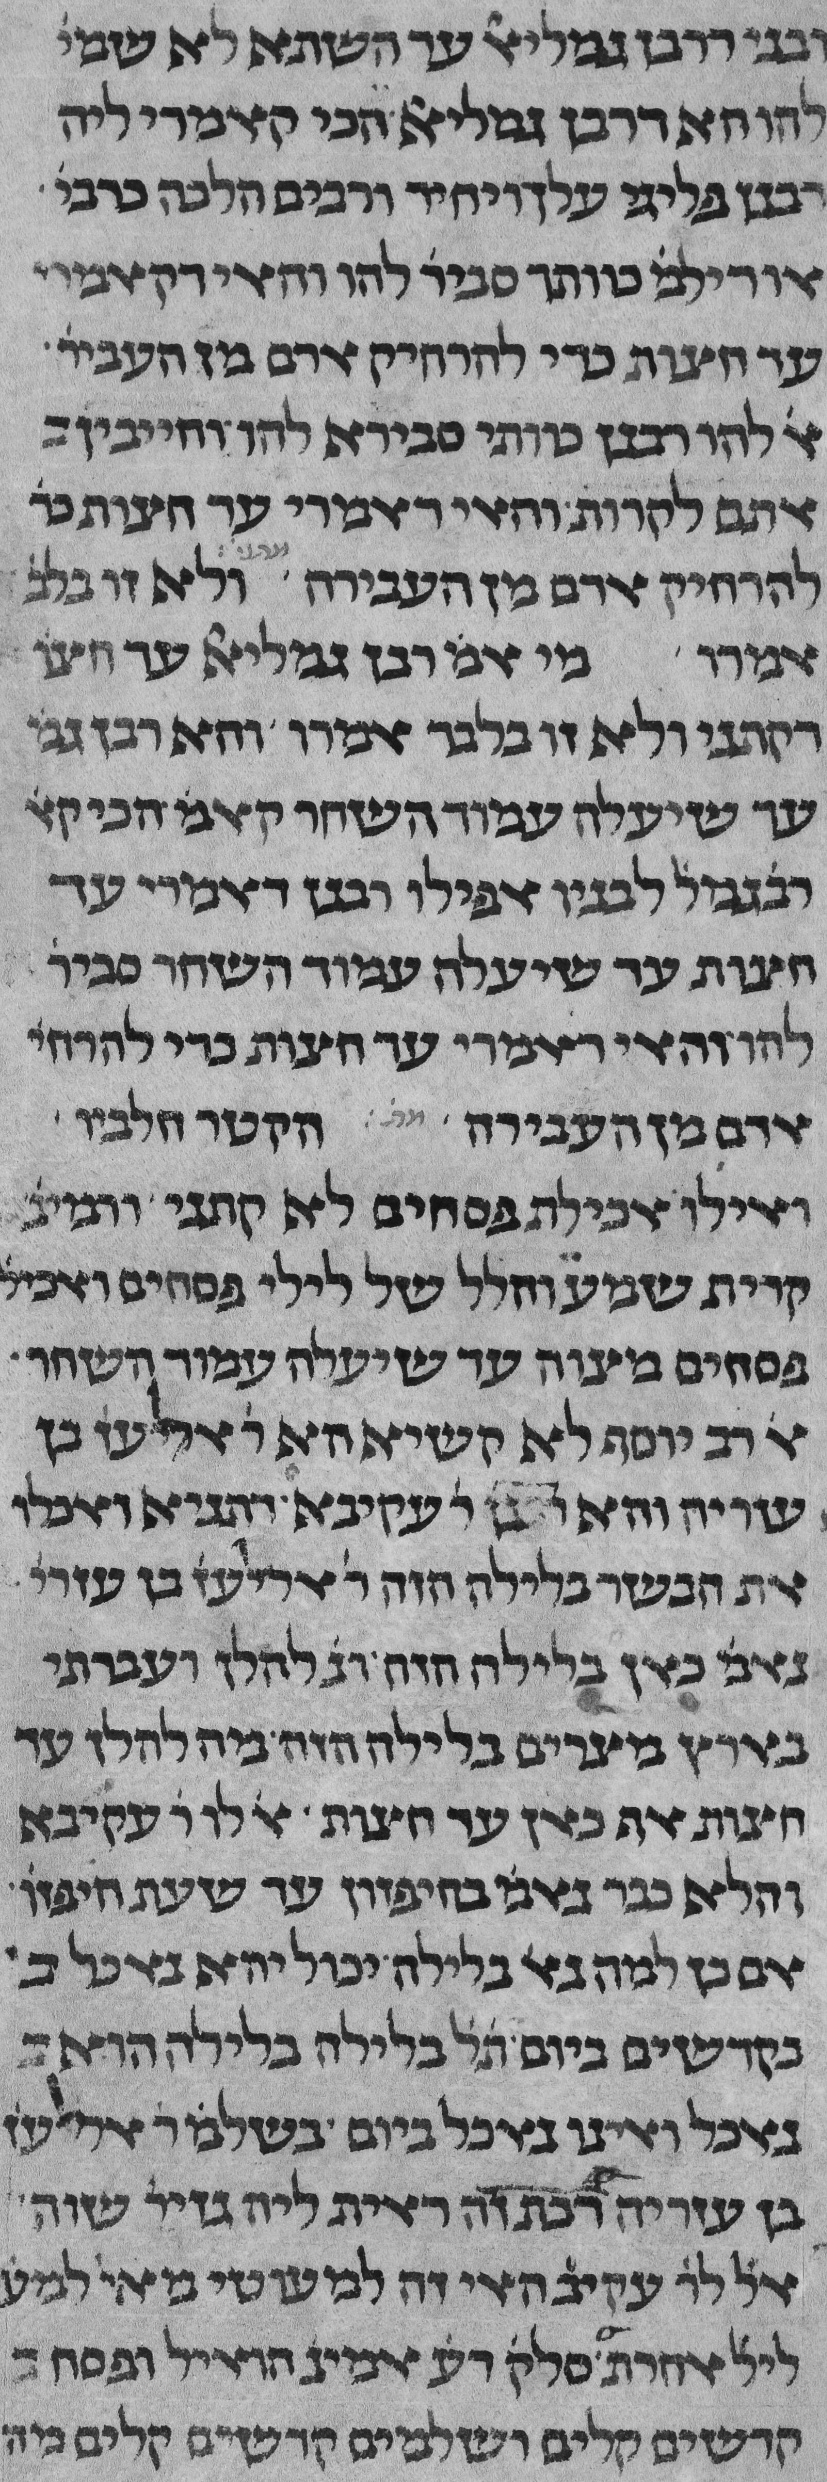 ובני דרבן גמליא' עד השתא לא שמי'
להו הא דרבן גמליא' הכי קאמרי ליה
רבנן פליגי עלך ויחיד ורבים הלכה כרבי'
או דילמ' כוותך סביר' להו והאי דקאמרי
עד חצות כדי להרחיק אדם מן העביר'
א' להו רבנן כוותי סבירא להו וחייבין
אתם לקרות והאי דאמרי עד חצות כד'
להרחיק אדם מן העבירה ולא זו בלב'
אמרו מי אמ' רבן גמליא' עד חצו'
דקתני ולא זו בלבד אמרו והא רבן גמ'
עד שיעלה עמוד השחר קאמ' הכי קא'
רבן גמל' לבניו אפילו רבנן דאמרי עד
חצות עד שיעלה עמוד השחר סביר'
להו והאי דאמרי עד חצות כדי להרחי'
אדם מן העבירה הקטר חלביו
ואילו אכילת פסחים לא קתני ורמינ'
קרית שמע והלל של לילי פסחים ואכיל'
פסחים מצוה עד שיעלה עמוד השחר
א' רב יוסף לא קשיא הא ר' אליעז' בן
עזריה והא ר' עקיבא דתניא ואכלו
את הבשר בלילה הזה ר' אליעז' בן עזרי'
נאמ' כאן בלילה הזה ונ' להלן ועברתי
בארץ מצרים בלילה הזה מה להלן עד
חצות אף כאן עד חצות א' לו ר' עקיבא
והלא כבר נאמ' בחיפזון עד שעת חיפזו'
אם כן למה נא' בלילה יכול יהא נאכל כ'
בקדשים ביום תל' בלילה בלילה הוא
נאכל ואינו נאכל ביום בשלמ' ר' אליעז'
בן עזריה דאית ליה גזיר' שוה
אלא לר' עקיב' האי זה למעוטי מאי למע'
ליל' אחרת סלק' דע' אמינ' הואיל ופסח
קדשים קלים ושלמים קדשים קלים מה